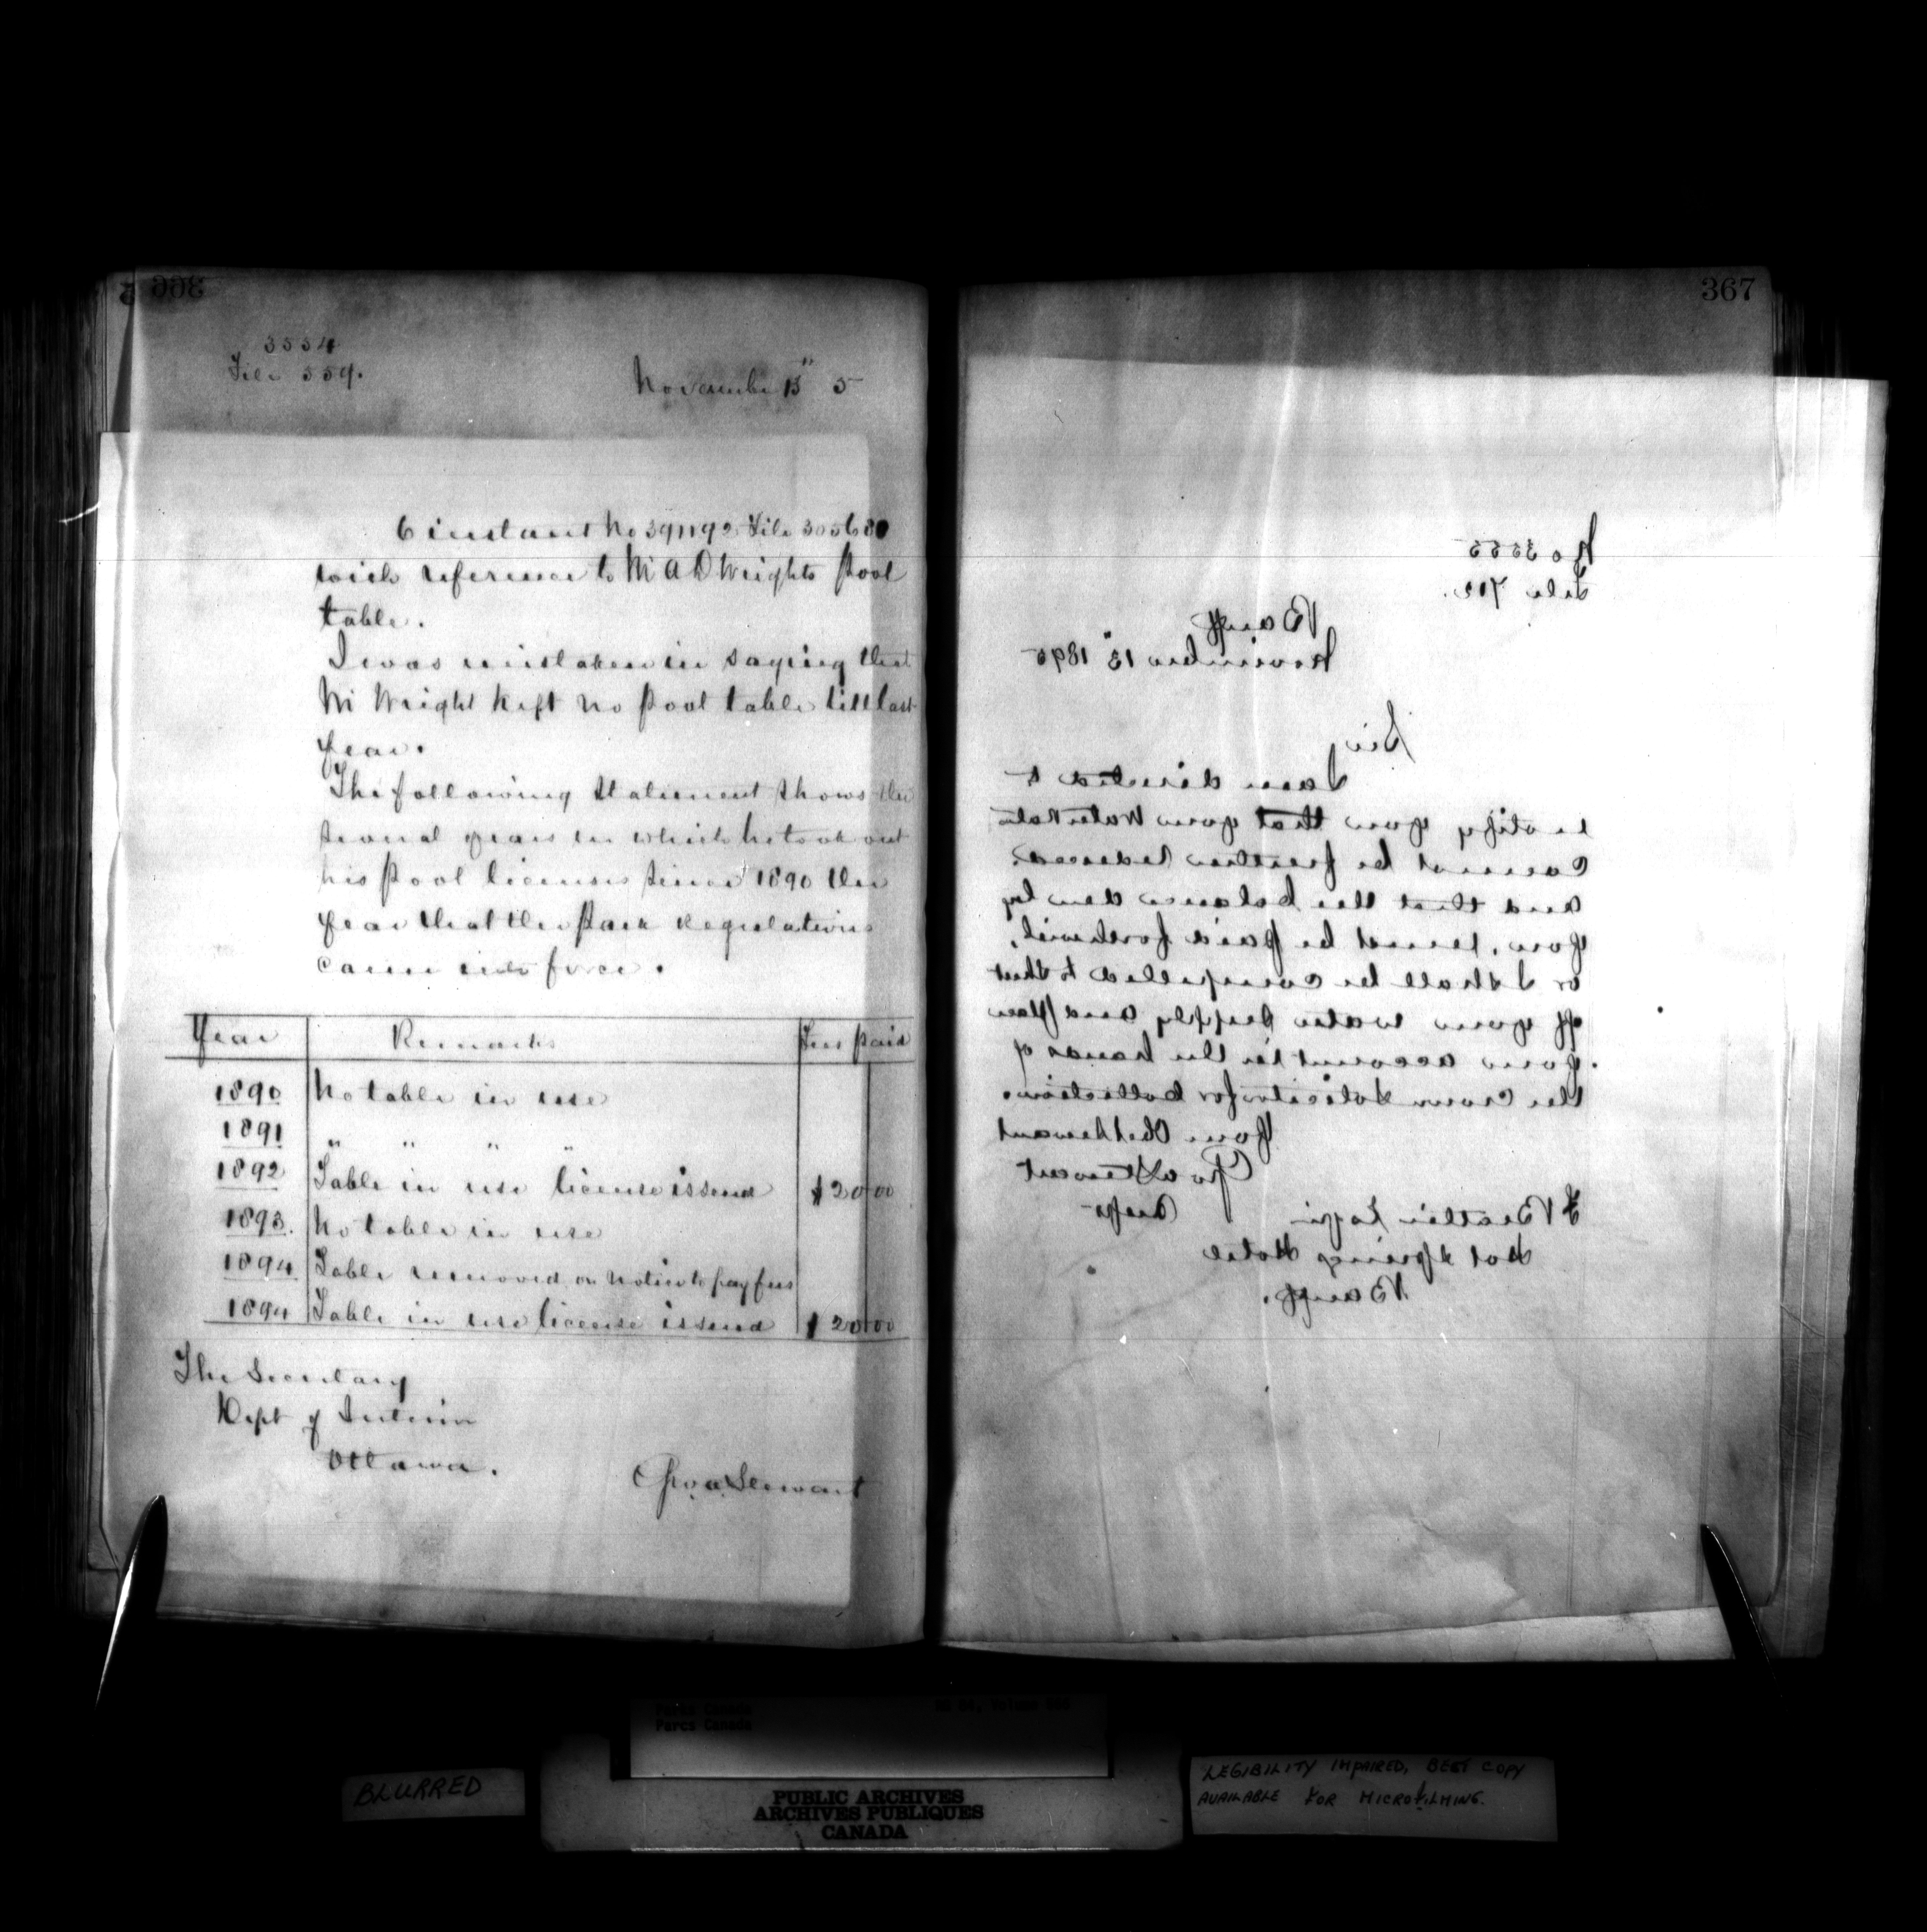 366
3554
File 559.
November 13" 5
6 instant No 391192 File 305680
with reference to Mr A D Wrights Pool
table.
I was mistaken in saying that
Mr Wright kept no Pool table till last
year.
The following statement shows the
several years in which he took out
his Pool licenses since 1890 the
year that the Park Regulations
came into force.
Year Remarks Fees paid
1890 No table in use
1891 " " " "
1892 Table in use license issued $20 00
1893. No table in use
1894 Table removed on notice to pay fees
1894 Table in use license issued $20 00
The Secretary
Dept of Interior
Ottawa.
Geo A Stewart
367
No 3555
File 702.
Banff
November 13" 1895
Sir
I am directed to
notify you that your Water Rate
cannot be further reduced
and that the balance due by
you, must be paid forthwith,
or I shall be compelled to shut
off your water supply and place
your account in the hands of
the Crown Solicitor for Collection.
Your Obedt servant
Geo A Stewart
Supt
F Beattie Esqr
Hot Springs Hotel
Banff.
Parks Canada
Parcs Canada
RG 84, Volume
BLURRED
PUBLIC ARCHIVES
ARCHIVES PUBLIQUES
CANADA
LEGIBILITY IMPAIRED, BEST COPY
AVAILABLE FOR MICROFILMING.